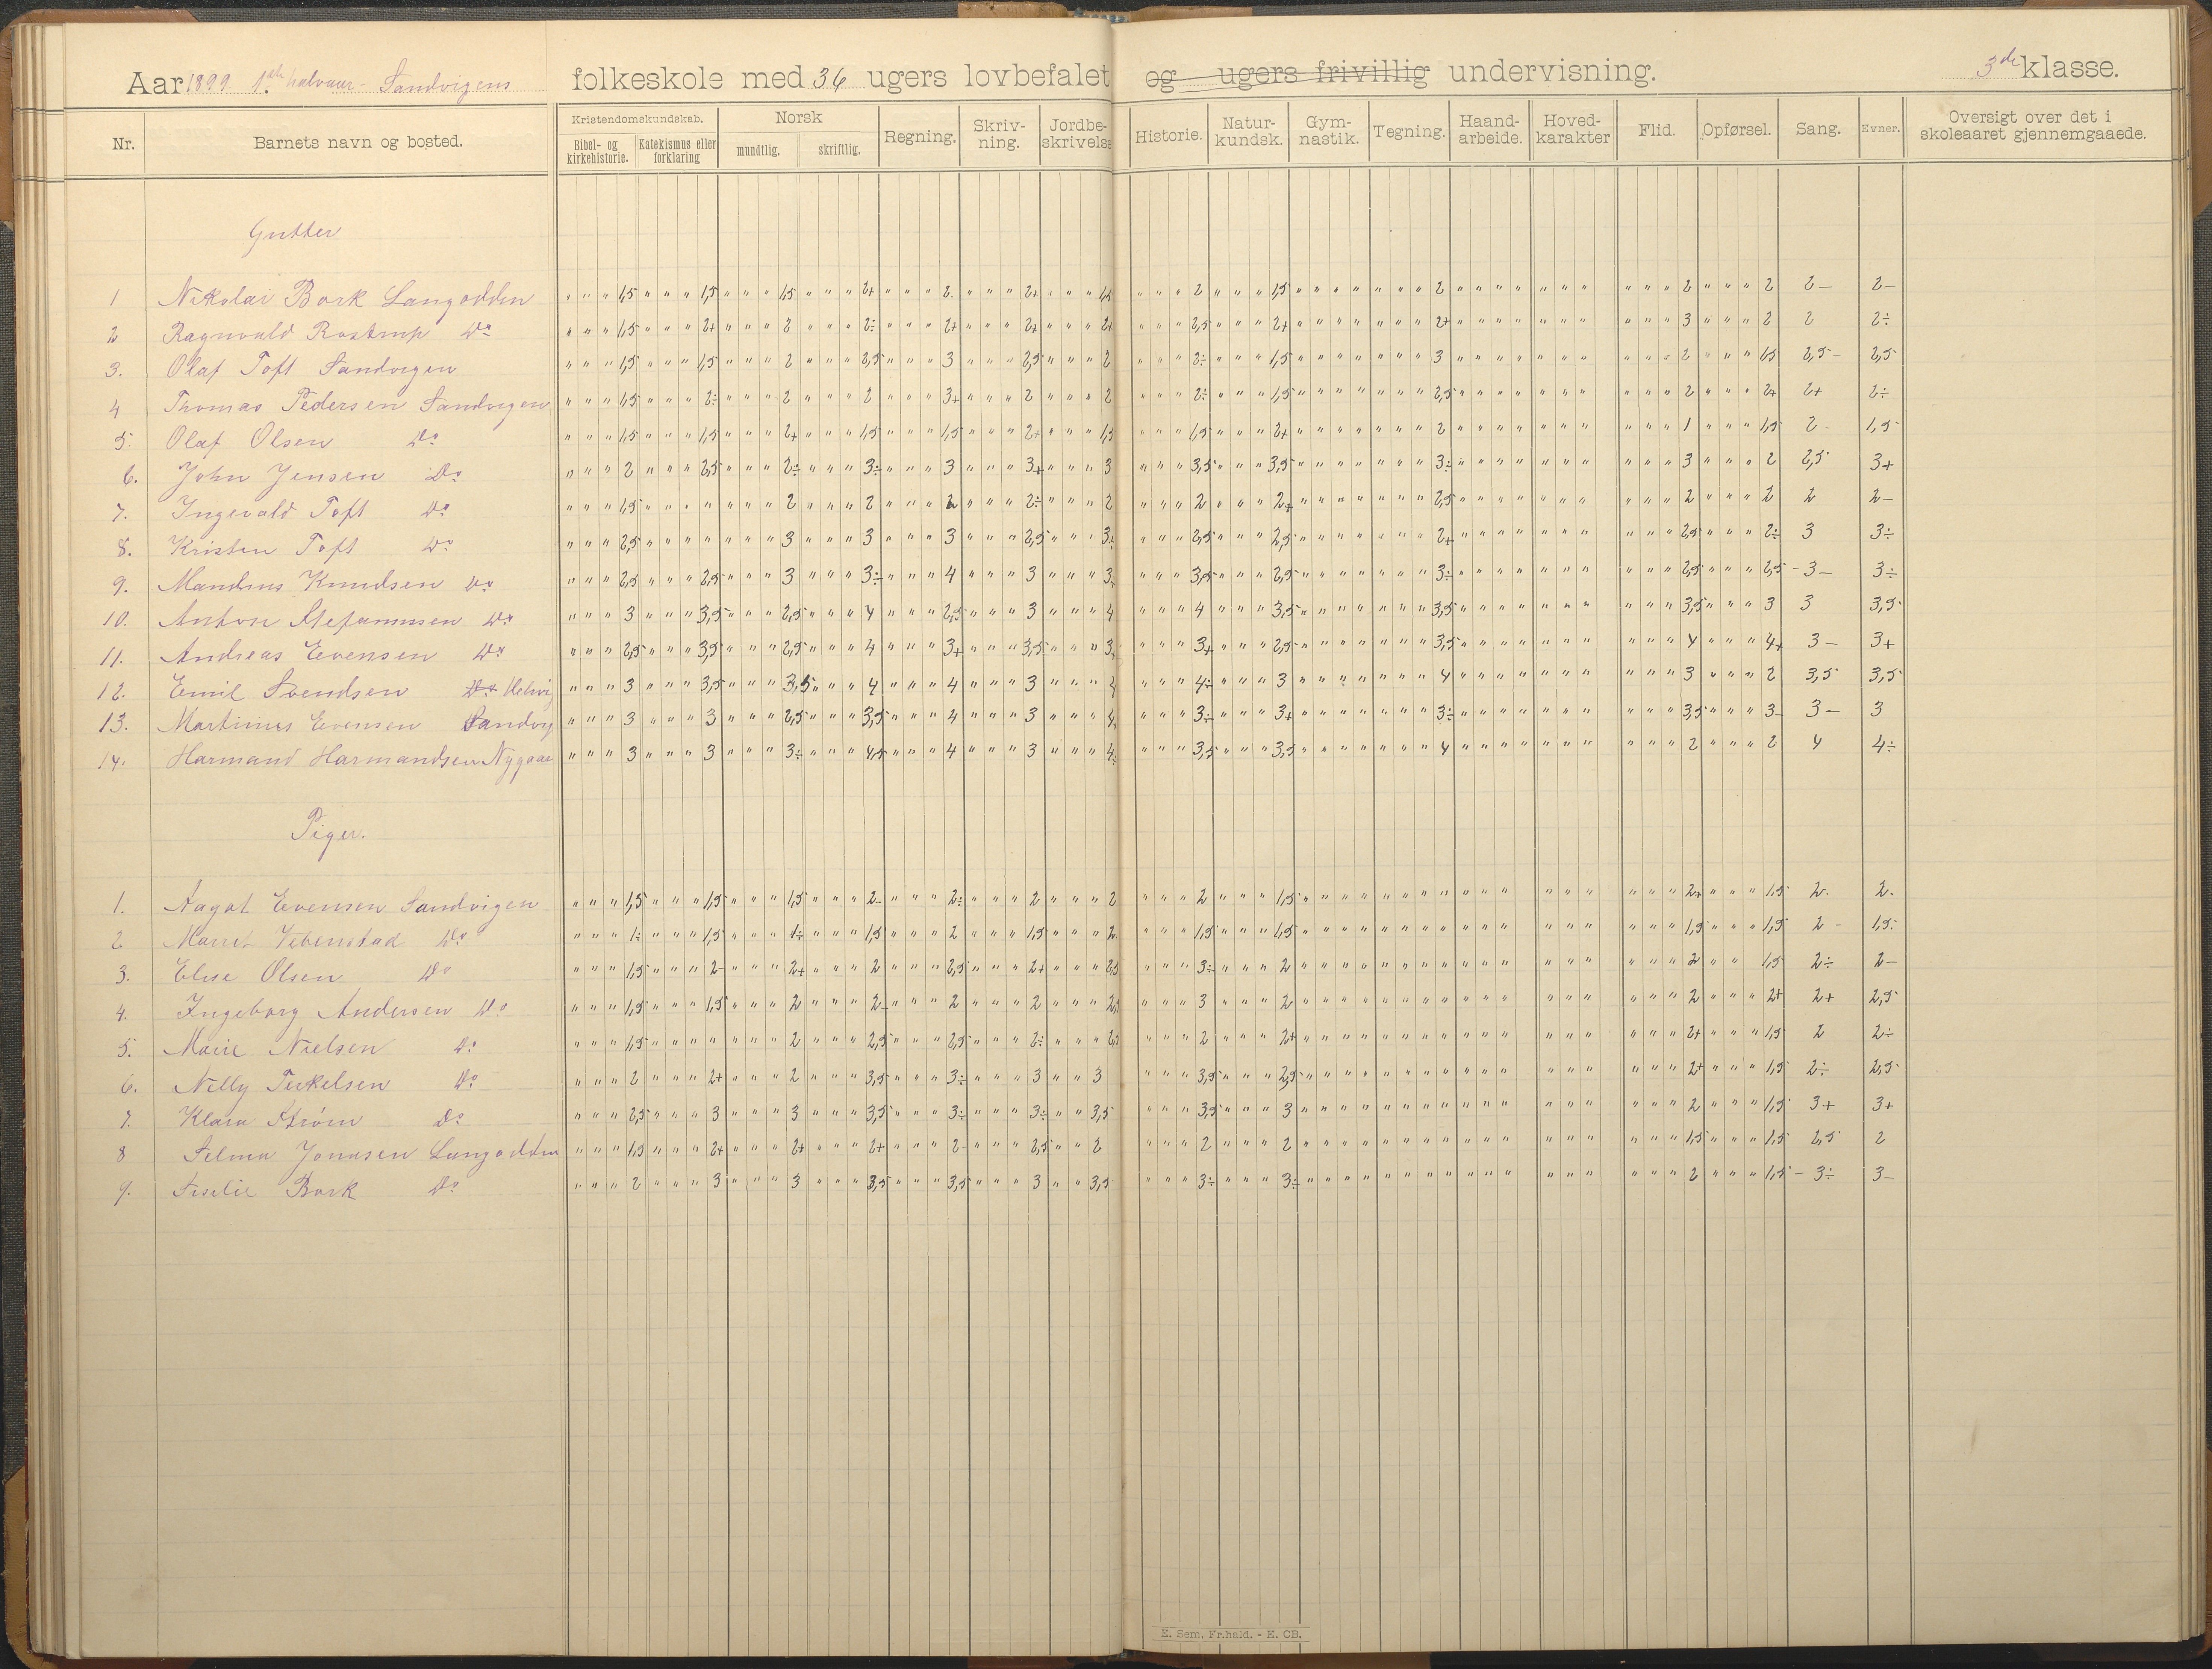 Aar 1899 1ste halvaar - Sandvigens folkeskole med 36 ugers lovbefalet og ugers frivillig undervisning. 3de klasse.
Nr. Barnets navn og bosted. Kristendomskundskab. Bibel- og kirkehistorie. Katekismus eller forklaring Norsk mundtlig. skriftlig. Regning. Skriv-ning. Jordbe-skrivelse Historie. Natur-kundsk. Gym-nastik. Tegning. Haand-arbeide. Hoved-karakter Flid. Opførsel. Sang. Evner. Oversigt over det i skoleaaret gjennemgaaede.
Gutter
1 Nikolai Bork Langodden " " " 1,5 " " " 1,5 " " " 1,5 " " " 2+ " " " 2. " " " 2+ " " " 1,5 " " " 2 " " " 1,5 " " " " " " " 2 " " " " " " " " " " 2 " " " 2 2- 2-
2 Ragnvald Rostrup Do " " " 1,5 " " " 2+ " " " 2 " " " 2÷ " " " 2+ " " " 2+ " " " 2+ " " " 2,5 " " " 2+ " " " " " " " 2+ " " " " " " " " " " 3 " " " 2 2 2÷
3. Olaf Toft Sandvigen " " " 1,5 " " " 1,5 " " " 2 " " " 2,5 " " " 3 " " " 2,5 " " " 2 " " " 2÷ " " " 1,5 " " " " " " " 3 " " " " " " " " " " 2 " " " 1,5 2,5- 2,5
4 Thomas Pedersen Sandvigen " " " 1,5 " " " 2÷ " " " 2 " " " 2 " " " 3+ " " " 2 " " " 2 " " " 2÷ " " " 1,5 " " " " " " " 2,5 " " " " " " " " " " 2 " " " 2+ 2+ 2÷
5. Olaf Olsen Do " " " 1,5 " " " 1,5 " " " 2+ " " " 1,5 " " " 1,5 " " " 2+ " " " 1,5 " " " 1,5 " " " 2+ " " " " " " " 2 " " " " " " " " " " 1 " " " 1,5 2- 1,5
6. John Jensen Do " " " 2 " " " 2,5 " " " 2÷ " " " 3÷ " " " 3 " " " 3+ " " " 3 " " " 3,5 " " " 3,5 " " " " " " " 3÷ " " " " " " " " " " 3 " " " 2 2,5 3+
7. Ingevald Toft Do " " " 1,5 " " " " " " " 2 " " " 2 " " " 2 " " " 2÷ " " " 2 " " " 2 " " " 2+ " " " " " " " 2,5 " " " " " " " " " " 2 " " " 2 2 2-
8. Kristen Toft Do " " " 2,5 " " " " " " " 3 " " " 3 " " " 3 " " " 2,5 " " " 3÷ " " " 2,5 " " " 2,5 " " " " " " " 2+ " " " " " " " " " " 2,5 " " " 2÷ 3 3÷
9. Mandius Knudsen Do " " " 2,5 " " " 2,5 " " " 3 " " " 3÷ " " " 4 " " " 3 " " " 3÷ " " " 3,5 " " " 2,5 " " " " " " " 3÷ " " " " " " " " " " 2,5 " " " 2,5 -3- 3÷
10. Anton Stefanusen Do " " " 3 " " " 3,5 " " " 2,5 " " " 4 " " " 2,5 " " " 3 " " " 4 " " " 4 " " " 3,5 " " " " " " " 3,5 " " " " " " " " " " 3,5 " " " 3 3 3,5
11. Andreas Evensen Do " " " 2,5 " " " 3,5 " " " 2,5 " " " 4 " " " 3+ " " " 3,5 " " " 3+ " " " 3+ " " " 2,5 " " " " " " " 3,5 " " " " " " " " " " 4 " " " 4+ 3- 3+
12. Emil Svendsen Do " " " 3 " " " 3,5 " " " 3,5 " " " 4 " " " 4 " " " 3 " " " 4 " " " 4÷ " " " 3 " " " " " " " 4 " " " " " " " " " " 3 " " " 2 3,5 3,5
13. Martinius Evensen Sandvig " " " 3 " " " 3 " " " 2,5 " " " 3,5 " " " 4 " " " 3 " " " 4 " " " 3÷ " " " 3+ " " " " " " " 3÷ " " " " " " " " " " 3,5 " " " 3- 3- 3
14. Harmand Harmandsen Nygaae " " " 3 " " " 3 " " " 3÷ " " " 4,5 " " " 4 " " " 3 " " " 4÷ " " " 3,5 " " " 3,5 " " " " " " " 4 " " " " " " " " " " 2 " " " 2 4 4÷
Piger.
1. Aagot Evensen Sandvigen " " " 1,5 " " " 1,5 " " " 1,5 " " " 2- " " " 2÷ " " " 2 " " " 2 " " " 2 " " " 1,5 " " " " " " " " " " " " " " " " " " 2+ " " " 1,5 2- 2-
2 Marie Vebenstad Do " " " 1÷ " " " 1,5 " " " 1÷ " " " 1,5 " " " 2 " " " 1,5 " " " 2 " " " 1,5 " " " 1,5 " " " " " " " " " " " " " " " " " " 1,5 " " " 1,5 2- 1,5
3. Elise Olsen Do " " " 1,5 " " " 2- " " " 2+ " " " 2 " " " 2,5 " " " 2+ " " " 2,5 " " " 3÷ " " " 2 " " " " " " " " " " " " " " " " " " 2 " " 1,5 2÷ 2-
4. Ingeborg Andersen Do " " " 1,5 " " " 1,5 " " " 2 " " " 2- " " " 2 " " " 2 " " " 2,5 " " " 3 " " " 2 " " " " " " " " " " " " " " " " " " 2 " " " 2+ 2+ 2,5
5. Marie Nielsen Do " " " 1,5 " " " " " " " 2 " " " 2,5 " " " 2,5 " " " 2÷ " " " 2,5 " " " 2 " " " 2+ " " " " " " " " " " " " " " " " " " 2+ " " " 1,5 2 2÷
6. Nelly Terkelsen Do " " " 2 " " " 2+ " " " 2 " " " 3,5 " " " 3÷ " " " 3 " " 3 " " " 3,5 " " " 2,5 " " " " " " " " " " " " " " " " " " 2+ " " " 1,5 2÷ 2,5
7. Klara Strøm Do " " " 2,5 " " " 3 " " " 3 " " " 3,5 " " " 3÷ " " " 3÷ " " 3,5 " " " 3,5 " " " 3 " " " " " " " " " " " " " " " " " " 2 " " " 1,5 3+ 3+
8 Selma Jonasen Langodden " " " 1,5 " " " 2+ " " " 2+ " " " 2+ " " " 2- " " " 2,5 " " 2 " " " 2 " " " 2 " " " " " " " " " " " " " " " " " " 1,5 " " " 1,5 2,5 2
9. Bork Do " " " 2 " " " 3 " " " 3 " " " 3,5 " " " 3,5 " " " 3 " " 3,5 " " " 3÷ " " " 3÷ " " " " " " " " " " " " " " " " " " 2 " " " 1,5 -3÷ 3-
E. Sem, Fr.hald. - E. CB.